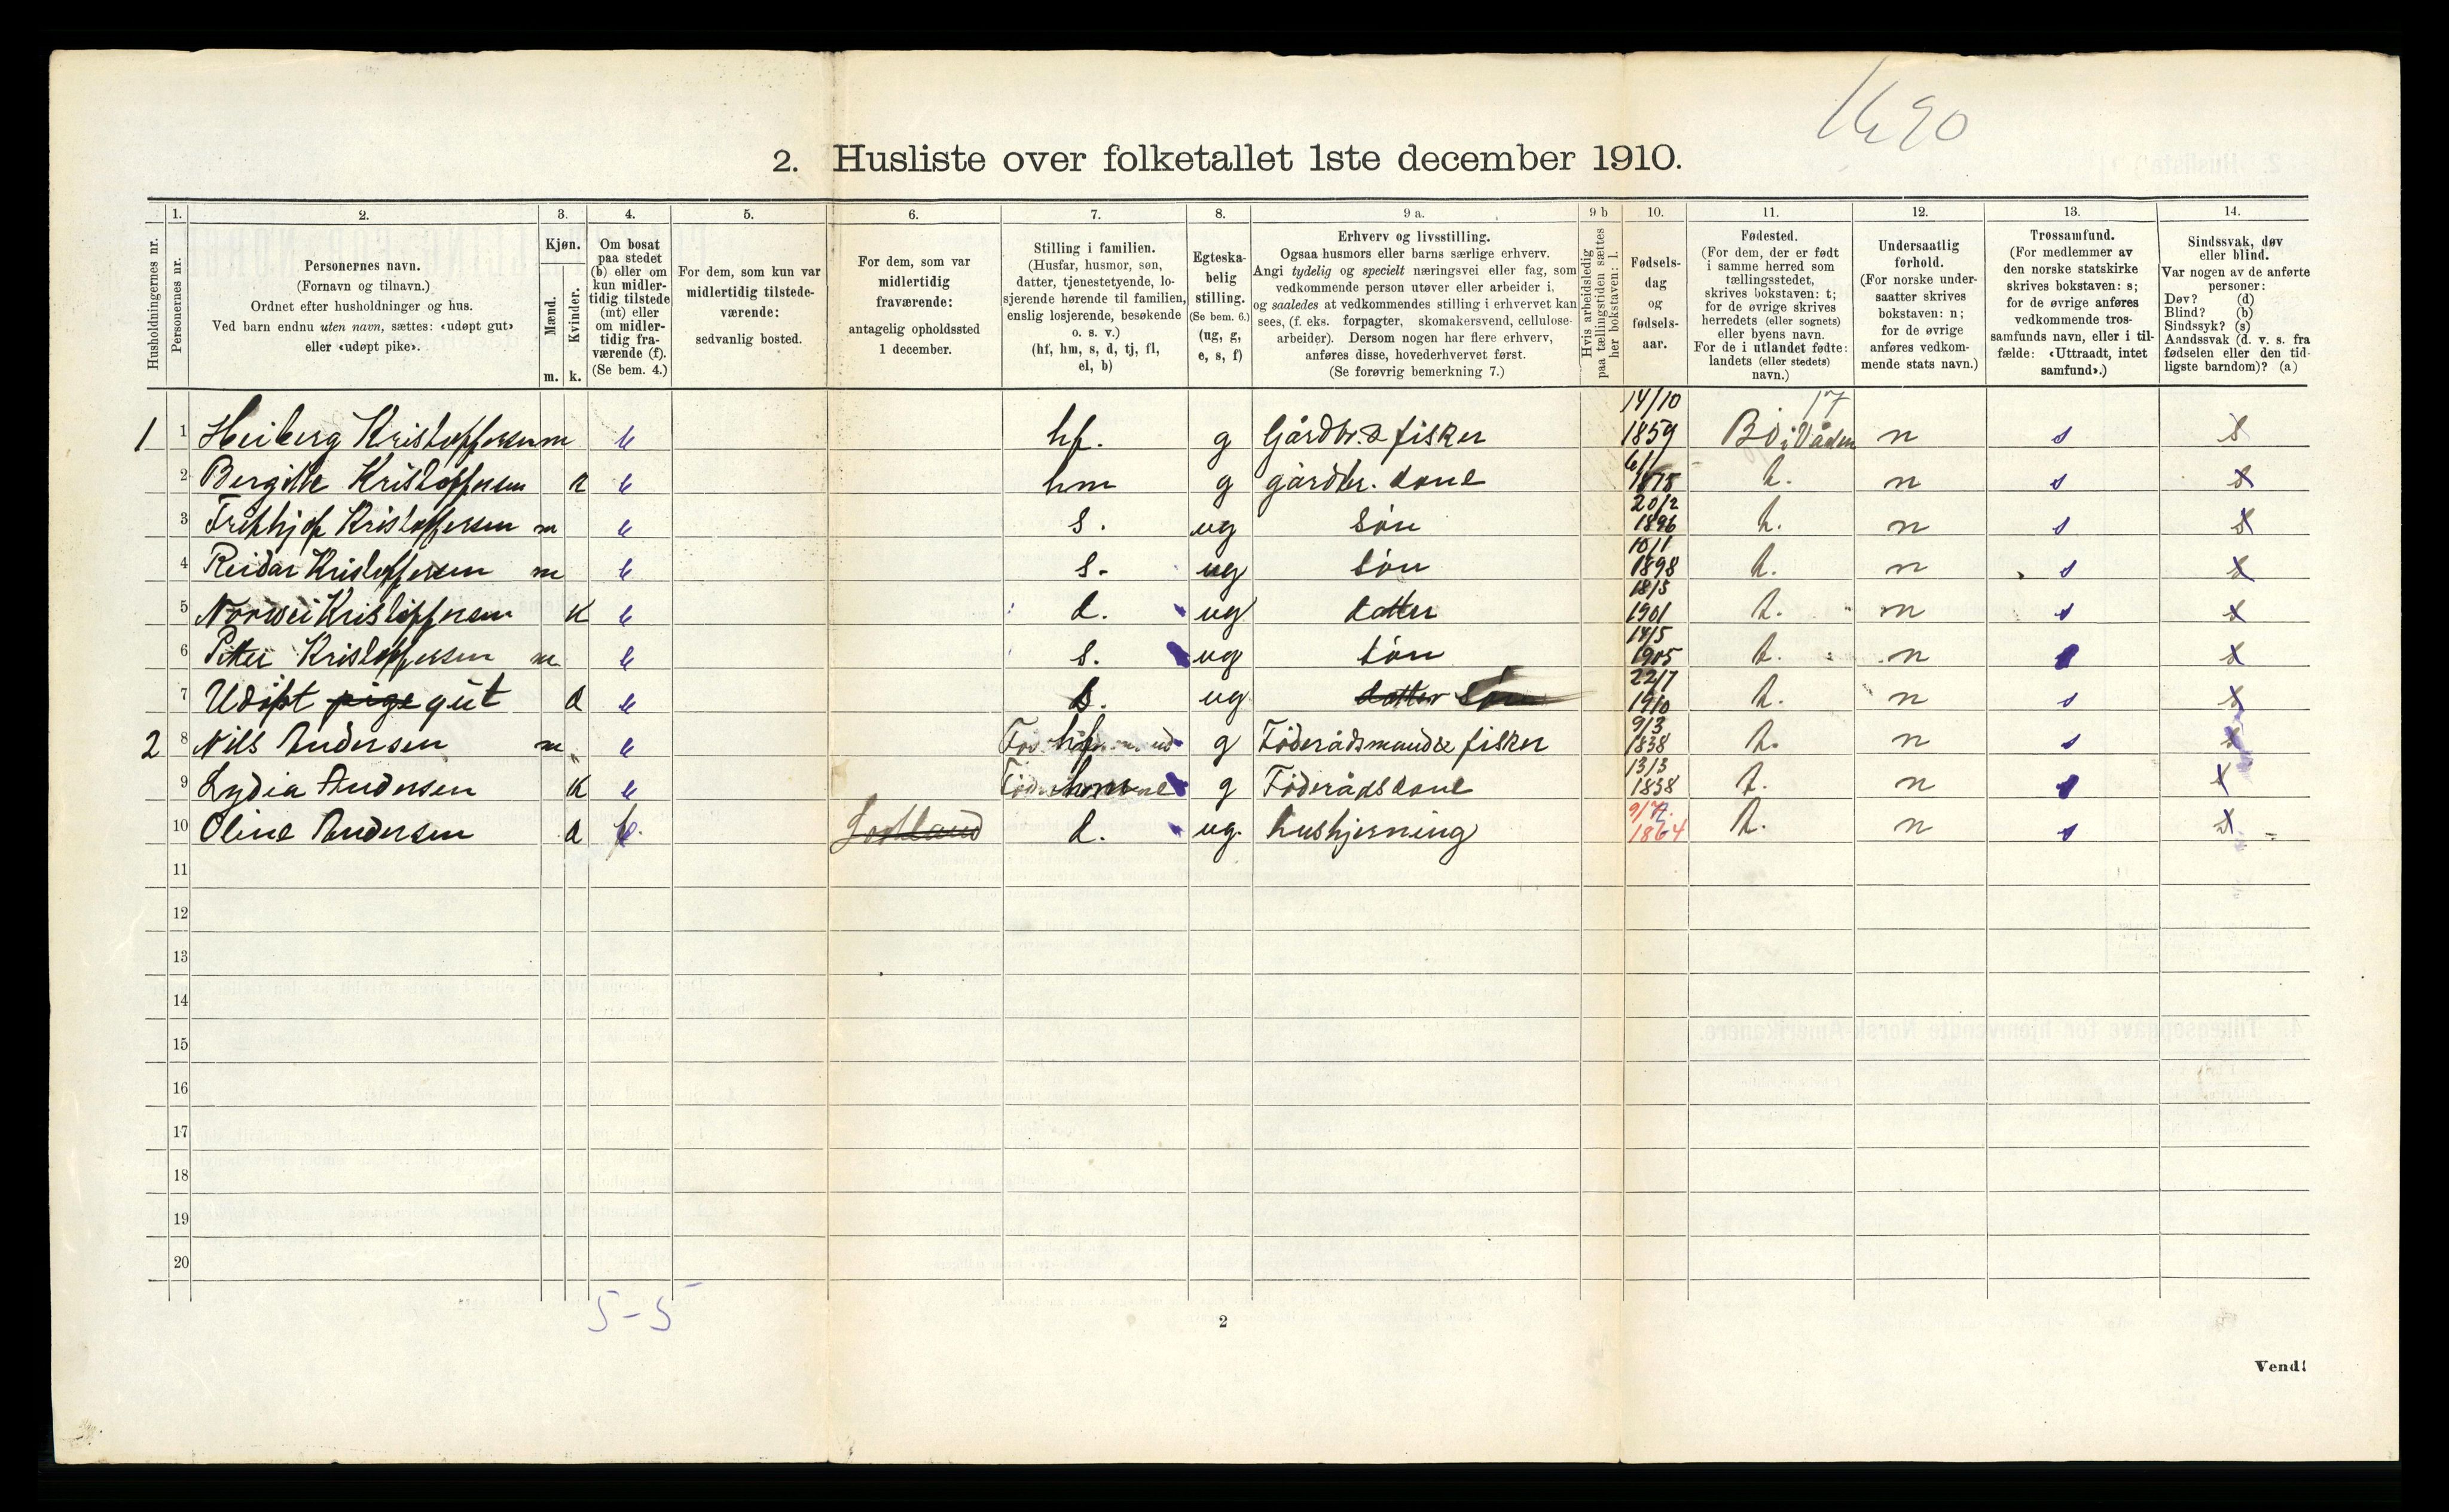 1690
2. Husliste over folketallet 1ste december 1910.
Husholdningernes nr.
1. Personernes nr.
2. Personernes navn.
(Fornavn og tilnavn.)
Ordnet efter husholdninger og hus.
Ved barn endnu uten navn, sættes: «udøpt gut»
eller «udøpt pike».
3. Kjøn.
Mænd. Kvinder.
m. k.
4. Om bosat
paa stedet
(b) eller om
kun midler-
tidig tilstede
(mt) eller
om midler-
tidig fra-
værende (f).
(Se bem. 4.)
5. For dem, som kun var
midlertidig tilstede-
værende:
sedvanlig bosted.
6. For dem, som var
midlertidig
fraværende:
antagelig opholdssted
1 december.
7. Stilling i familien.
(Husfar, husmor, søn,
datter, tjenestetyende, lo-
sjerende hørende til familien,
enslig losjerende, besøkende
o. s. v.)
(hf, hm, s, d, tj, fl,
el, b)
8. Egteska-
belig
stilling.
(Se bem. 6.)
(ug, g,
e, s, f)
9 a. Erhverv og livsstilling.
Ogsaa husmors eller barns særlige erhverv.
Angi tydelig og specielt næringsvei eller fag, som
vedkommende person utøver eller arbeider i,
og saaledes at vedkommendes stilling i erhvervet kan
sees, (f. eks. forpagter, skomakersvend, cellulose-
arbeider). Dersom nogen har flere erhverv,
anføres disse, hovederhvervet først.
(Se forøvrig bemerkning 7.)
9 b Hvis arbeidsledig
paa tællingstiden sættes
her bokstaven: l.
10. Fødsels-
dag
og
fødsels-
aar.
11. Fødested.
(For dem, der er født
i samme herred som
tællingsstedet,
skrives bokstaven: t;
for de øvrige skrives
herredets (eller sognets)
eller byens navn.
For de i utlandet fødte:
landets (eller stedets)
navn.)
12. Undersaatlig
forhold.
(For norske under-
saatter skrives
bokstaven: n;
for de øvrige
anføres vedkom-
mende stats navn.)
13. Trossamfund.
(For medlemmer av
den norske statskirke
skrives bokstaven: s;
for de øvrige anføres
vedkommende tros-
samfunds navn, eller i til-
fælde: «Uttraadt, intet
samfund».)
14. Sindssvak, døv
eller blind.
Var nogen av de anførte
personer:
Døv? (d)
Blind? (b)
Sindssyk? (s)
Aandssvak (d. v. s. fra
fødselen eller den tid-
ligste barndom)? (a)
1 1 Heiberg Kristoffersen m b hf. g Gårdbr. & fisker 14/10 1859 Bö i 17 n s
2 Bergitte Kristoffersen k b hm g gårdbr. kone 6/1 1875 t. n s
3 Frithjof Kristoffersen m b s. ug søn 20/2 1896 t. n s
4 Reidar Kristoffersen m b s. ug søn 10/1 1898 t. n s
5 Kristoffersen k b d. ug datter 18/5 1901 t. n s
6 Petter Kristoffersen m b s. ug søn 14/5 1905 t. n s
7 Udöpt pige gut k b ug datter søn 22/7 1910 t. n s
2 8 Nils Andersen m b hf g Föderådsmand & fisker 9/3 1838 t. n s
9 Lydia Andersen k b hm g Föderådskone 13/3 1838 t. n s
10 Oline Andersen k b. d. ug. husgjerning 1864 t. n s
11
12
13
14
15
16
17
18
19
20
5-5
2
Vend!